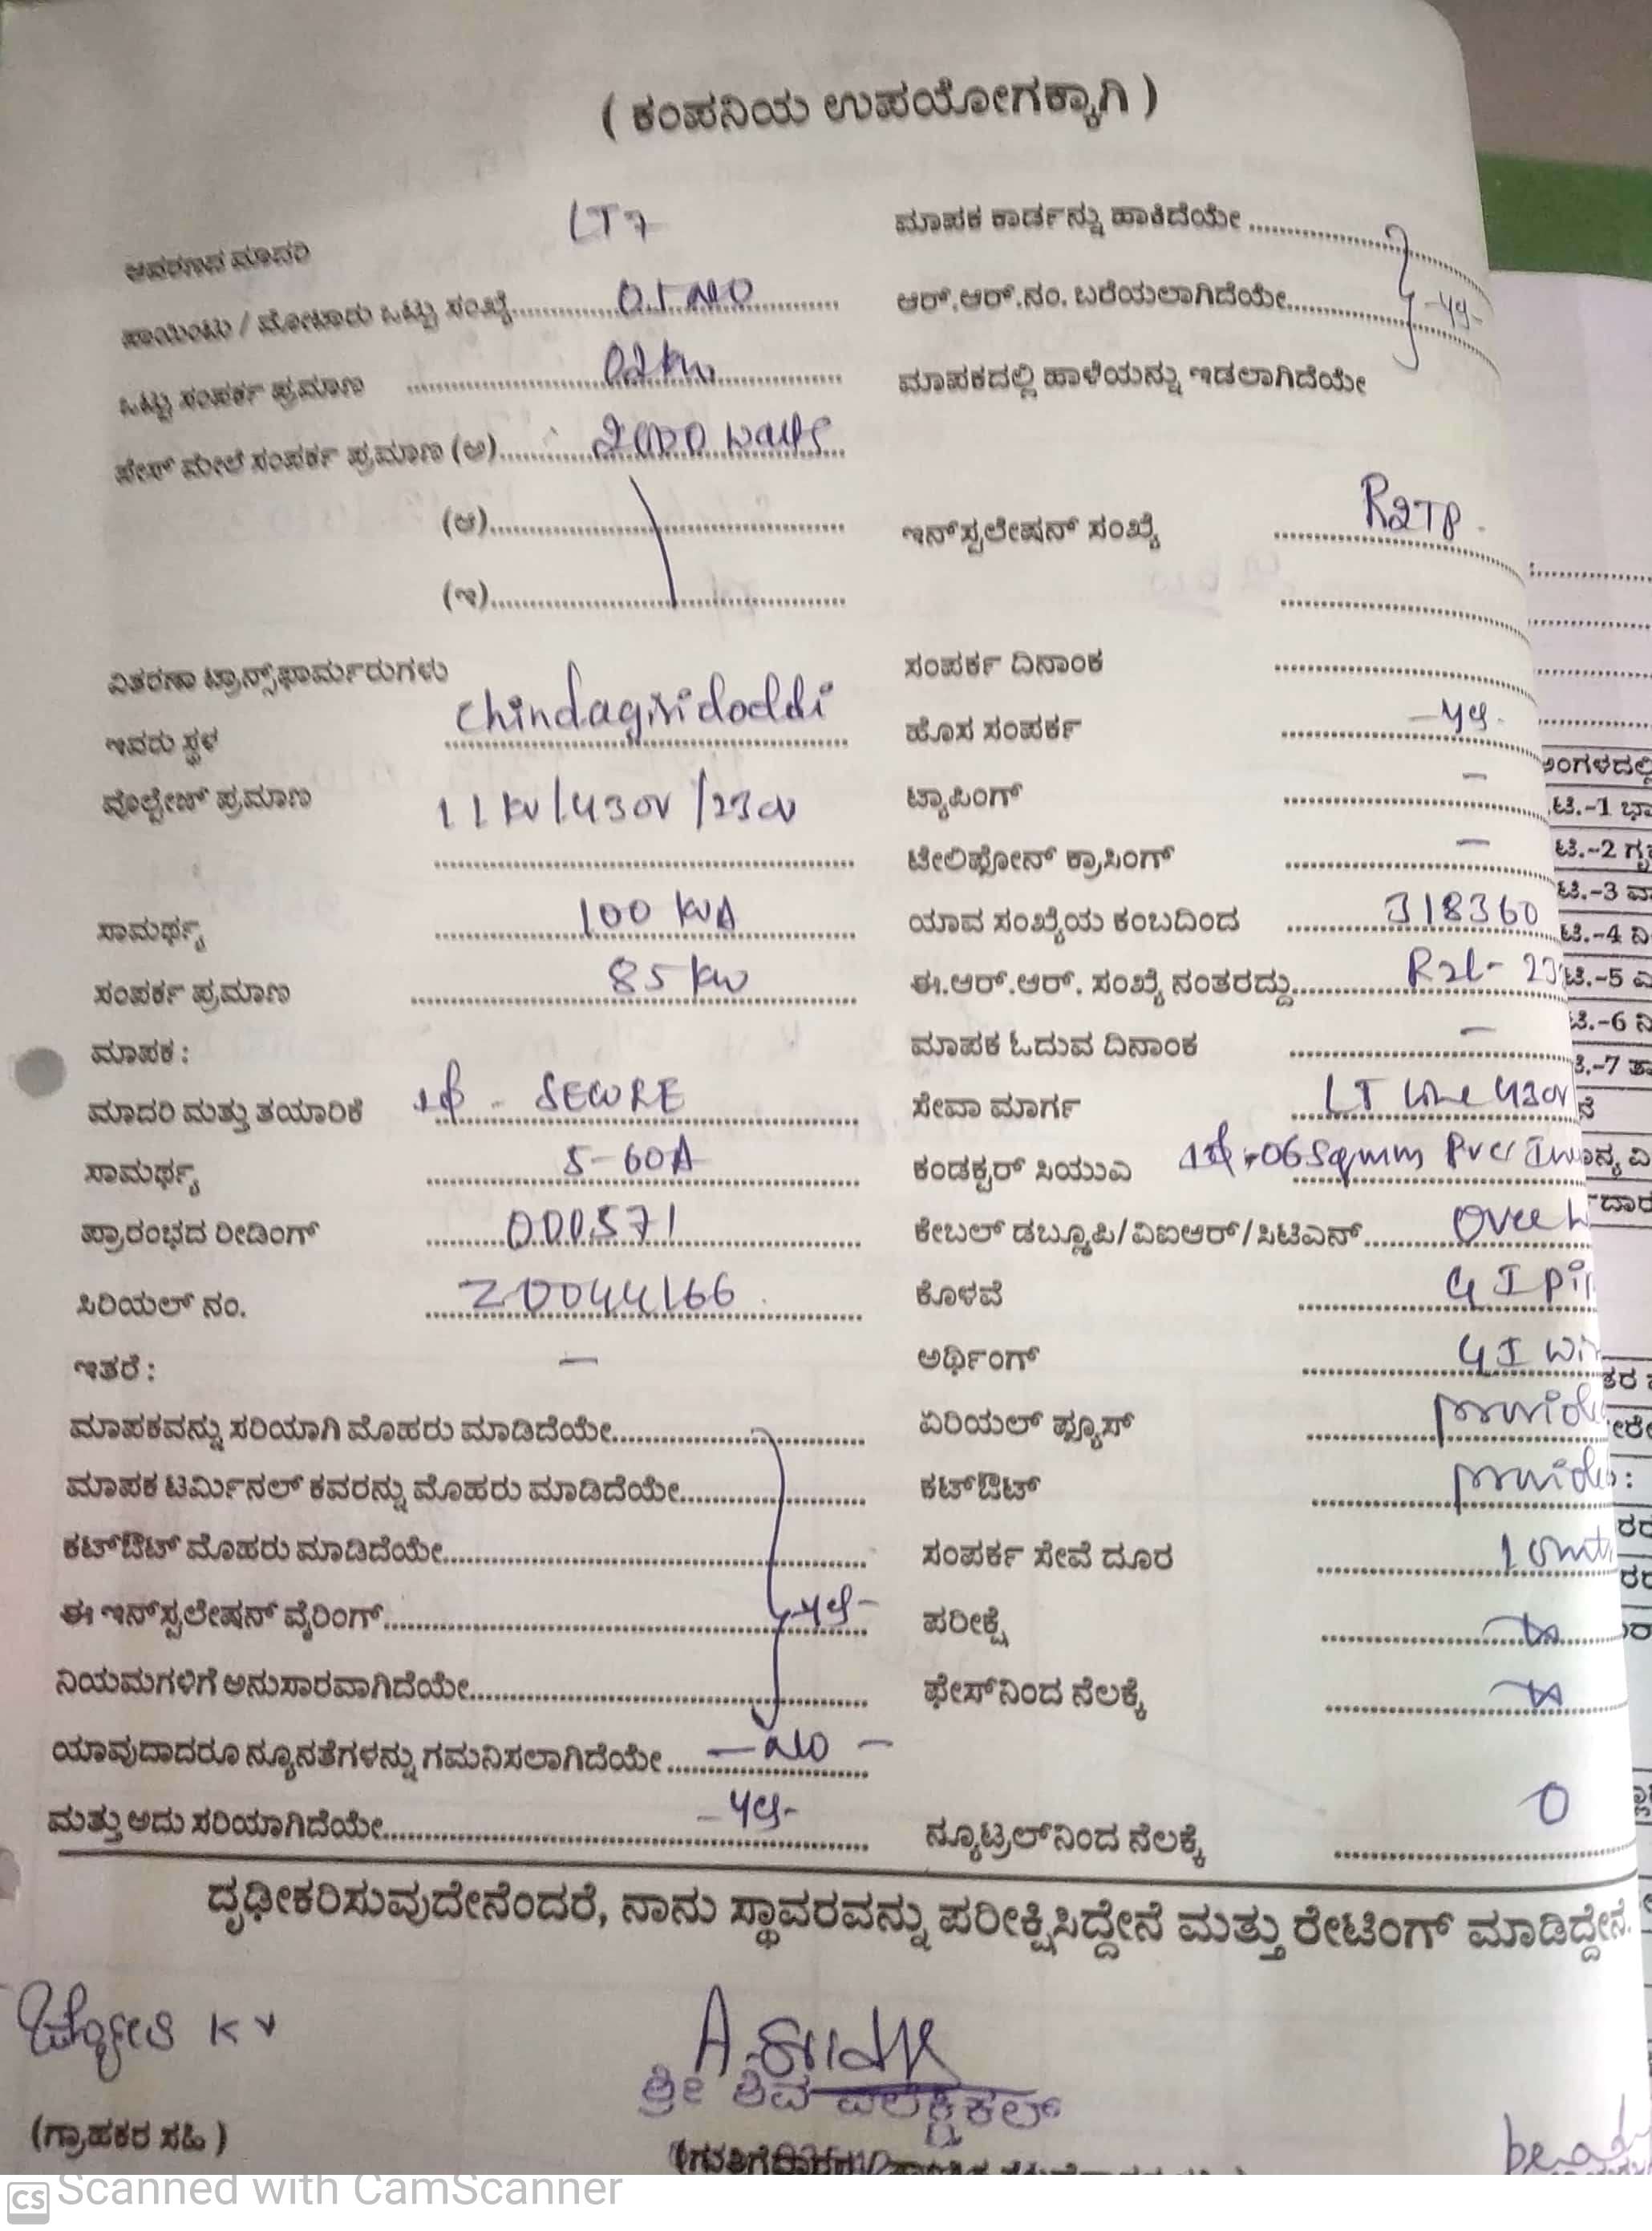 ( ಕಂಪನಿಯ ಉಪಯೋಗಕ್ಕಾಗಿ )
ಆವರಣದ ಮಾದರಿ LT7
ಪಾಯಿಂಟು / ಮೋಟಾರು ಒಟ್ಟು ಸಂಖ್ಯೆ.......... 01 NO
ಒಟ್ಟು ಸಂಪರ್ಕ ಪ್ರಮಾಣ .......... 02 kw
ಫೇಸ್ ಮೇಲೆ ಸಂಪರ್ಕ ಪ್ರಮಾಣ (ಅ).......... 2000 watts
(ಆ)..........
(ಇ)..........
ವಿತರಣಾ ಟ್ರಾನ್ಸ್‌ಫಾರ್ಮರುಗಳು
ಇವರು ಸ್ಥಳ Chindagiridoddi
ವೊಲ್ಟೇಜ್ ಪ್ರಮಾಣ 11 kv/430v/230v
ಸಾಮರ್ಥ್ಯ 100 KVA
ಸಂಪರ್ಕ ಪ್ರಮಾಣ 85 kw
ಮಾಪಕ :
ಮಾದರಿ ಮತ್ತು ತಯಾರಿಕೆ 1ф - SECURE
ಸಾಮರ್ಥ್ಯ 5-60A
ಪ್ರಾರಂಭದ ರೀಡಿಂಗ್ 000571
ಸಿರಿಯಲ್ ನಂ. Z0044166
ಇತರೆ : —
ಮಾಪಕವನ್ನು ಸರಿಯಾಗಿ ಮೊಹರು ಮಾಡಿದೆಯೇ..........
ಮಾಪಕ ಟರ್ಮಿನಲ್ ಕವರನ್ನು ಮೊಹರು ಮಾಡಿದೆಯೇ..........
ಕಟ್‌ಔಟ್ ಮೊಹರು ಮಾಡಿದೆಯೇ..........
ಈ ಇನ್‌ಸ್ಟಲೇಷನ್ ವೈರಿಂಗ್.......... -yes-
ನಿಯಮಗಳಿಗೆ ಅನುಸಾರವಾಗಿದೆಯೇ..........
ಯಾವುದಾದರೂ ನ್ಯೂನತೆಗಳನ್ನು ಗಮನಿಸಲಾಗಿದೆಯೇ.......... — NO —
ಮತ್ತು ಅದು ಸರಿಯಾಗಿದೆಯೇ.......... -yes-
ಮಾಪಕ ಕಾರ್ಡನ್ನು ಹಾಕಿದೆಯೇ..........
ಆರ್.ಆರ್.ನಂ. ಬರೆಯಲಾಗಿದೆಯೇ.......... -yes-
ಮಾಪಕದಲ್ಲಿ ಹಾಳೆಯನ್ನು ಇಡಲಾಗಿದೆಯೇ
ಇನ್‌ಸ್ಟಲೇಷನ್ ಸಂಖ್ಯೆ
ಸಂಪರ್ಕ ದಿನಾಂಕ ..........
ಹೊಸ ಸಂಪರ್ಕ -yes-
ಟ್ಯಾಪಿಂಗ್ —
ಟೇಲಿಫೋನ್ ಕ್ರಾಸಿಂಗ್ —
ಯಾವ ಸಂಖ್ಯೆಯ ಕಂಬದಿಂದ 318360
ಈ.ಆರ್.ಆರ್. ಸಂಖ್ಯೆ ನಂತರದ್ದು..........
ಮಾಪಕ ಓದುವ ದಿನಾಂಕ —
ಸೇವಾ ಮಾರ್ಗ LT line 430v
ಕಂಡಕ್ಟರ್ ಸಿಯುಎ 06 Sqmm PVC
ಕೇಬಲ್ ಡಬ್ಲ್ಯೂಪಿ/ವಿಐಆರ್/ಸಿಟಿಎನ್.......... Over
ಕೊಳವೆ GI
ಅರ್ಥಿಂಗ್ GI
ಏರಿಯಲ್ ಫ್ಯೂಸ್
ಕಟ್‌ಔಟ್
ಸಂಪರ್ಕ ಸೇವೆ ದೂರ
ಪರೀಕ್ಷೆ
ಫೇಸ್‌ನಿಂದ ನೆಲಕ್ಕೆ
ನ್ಯೂಟ್ರಲ್‌ನಿಂದ ನೆಲಕ್ಕೆ 0
ದೃಢೀಕರಿಸುವುದೇನೆಂದರೆ, ನಾನು ಸ್ಥಾವರವನ್ನು ಪರೀಕ್ಷಿಸಿದ್ದೇನೆ ಮತ್ತು ರೇಟಿಂಗ್ ಮಾಡಿದ್ದೇನೆ.
K V
ಶ್ರೀ ಶಿವ ಎಲೆಕ್ಟ್ರಿಕಲ್
(ಗ್ರಾಹಕರ ಸಹಿ )
CS Scanned with CamScanner